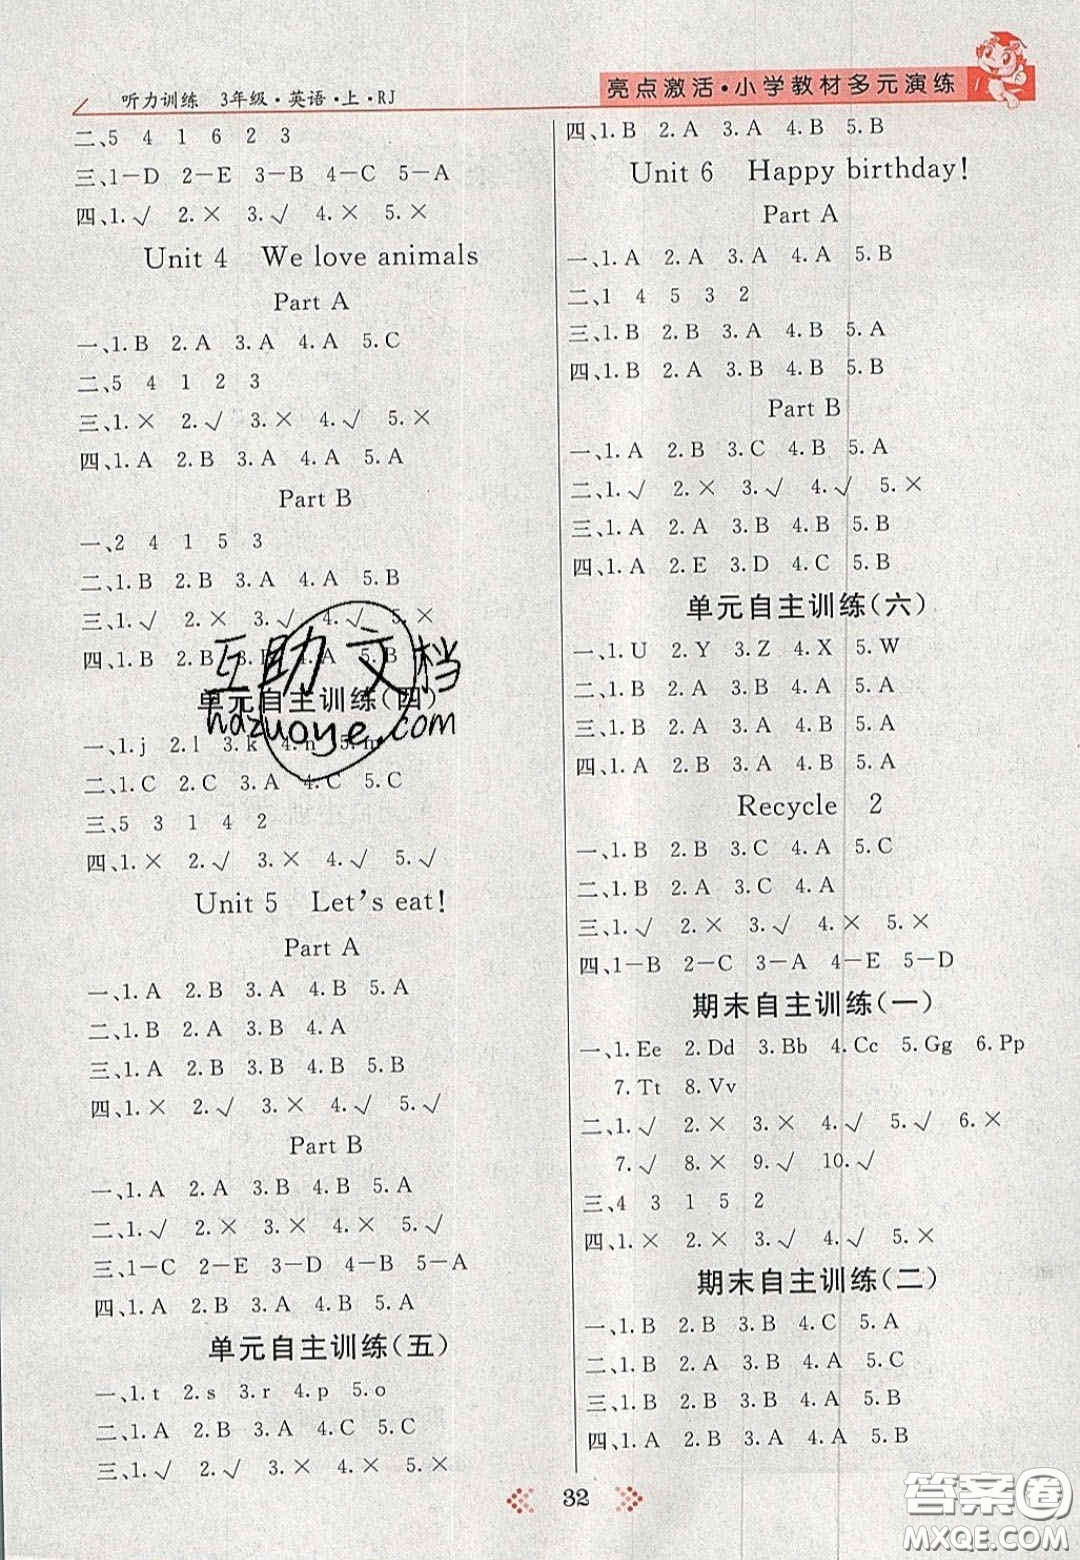 听力训练 3年级·英语·上·RJ
亮点激活·小学教材多元演练
二、5 4 1 6 2 3
三、1-D 2-E 3-B 4-C 5-A
四、1.√ 2.× 3.√ 4.× 5.×
Unit 4 We love animals
Part A
一、1.B 2.A 3.A 4.A 5.C
二、5 4 1 2 3
三、1.× 2.√ 3.× 4.√ 5.×
四、1.A 2.B 3.A 4.A 5.A
Part B
一、2 4 1 5 3
二、1.B 2.B 3.A 4.A 5.B
三、1.√ 2.× 3.√ 4.√ 5.×
四、1.B 2.B 3. 4.A 5.B
单元自主训练(四)
一、1.j 2.l 3.k 4.n 5.m
二、1.C 2.C 3.A 4.C 5.C
三、5 3 1 4 2
四、1.× 2.√ 3.× 4.√ 5.√
Unit 5 Let's eat!
Part A
一、1.A 2.B 3.A 4.B 5.A
二、1.B 2.A 3.B 4.A
三、1.A 2.B 3.A 4.B 5.B
四、1.× 2.√ 3.× 4.√ 5.√
Part B
一、1.A 2.A 3.B 4.B 5.A
二、1.√ 2.× 3.× 4.× 5.√
三、1-C 2-E 3-D 4-B 5-A
四、1.A 2.B 3.A 4.B 5.A
单元自主训练(五)
一、1.t 2.s 3.r 4.p 5.o
二、1.A 2.B 3.A 4.C 5.C
三、1.√ 2.√ 3.× 4.× 5.√
四、1.B 2.A 3.A 4.B 5.B
Unit 6 Happy birthday!
Part A
一、1.A 2.A 3.A 4.A 5.B
二、1 4 5 3 2
三、1.B 2.B 3.A 4.B 5.A
四、1.B 2.A 3.A 4.B 5.B
Part B
一、1.A 2.B 3.C 4.B 5.A
二、1.√ 2.× 3.√ 4.√ 5.×
三、1.A 2.A 3.B 4.B 5.B
四、1.A 2.E 3.D 4.C 5.B
单元自主训练(六)
一、1.U 2.Y 3.Z 4.X 5.W
二、1.B 2.B 3.A 4.A 5.A
三、1.B 2.A 3.B 4.A 5.A
四、1.B 2.A 3.A 4.B 5.A
Recycle 2
一、1.B 2.B 3.C 4.A 5.C
二、1.B 2.A 3.C 4.A
三、1.√ 2.× 3.√ 4.× 5.×
四、1-B 2-C 3-A 4-E 5-D
期末自主训练(一)
一、1.Ee 2.Dd 3.Bb 4.Cc 5.Gg 6.Pp
7.Tt 8.Vv
二、1.√ 2.× 3.× 4.√ 5.√ 6.×
7.√ 8.× 9.√ 10.√
三、4 3 1 5 2
四、1.× 2.× 3.√ 4.√ 5.×
期末自主训练(二)
一、1.B 2.B 3.B 4.C 5.A
二、1.B 2.A 3.B 4.A 5.C
三、1.B 2.A 3.A 4.B 5.A
四、1.A 2.B 3.A 4.A 5.B
32
互助文档
hdzuoye.com
答案圈
MXQE.COM